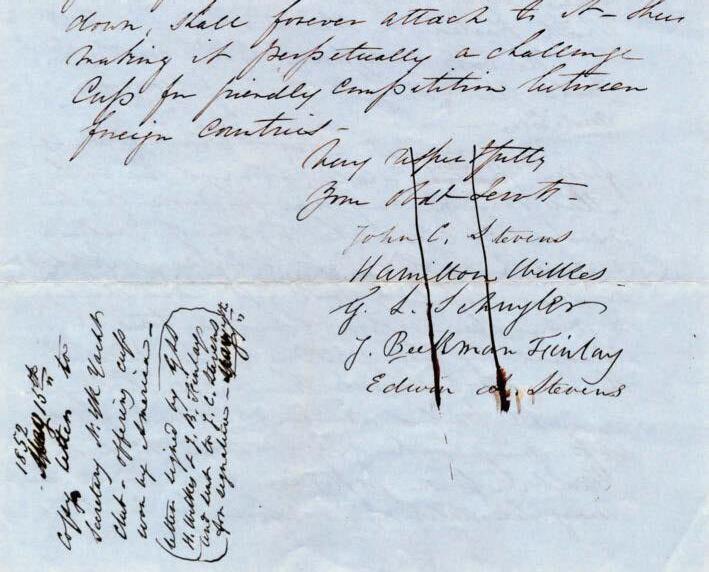 down, shall forever attach to it - thus
making it perpetually a challenge
Cup for friendly competition between
foreign countries -
Very respectfully
Your Obdt Servts -
John C. Stevens
Hamilton Wilkes
G. L. Schuyler
J. Beekman Finlay
Edwin A. Stevens
1852
May 15th
Copy letter to
Secretary N.Y. Yacht
Club - offering cup
won by America -
(letter signed by
H. Wilkes & J. B. Finlay
and sent to J. C. Stevens
for signature -